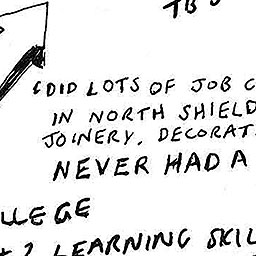 TB
DID LOTS OF JOB
IN NORTH SHIELD
JOINERY, DECORAT
NEVER HAD A
LLEGE
? LEARNING SKIL